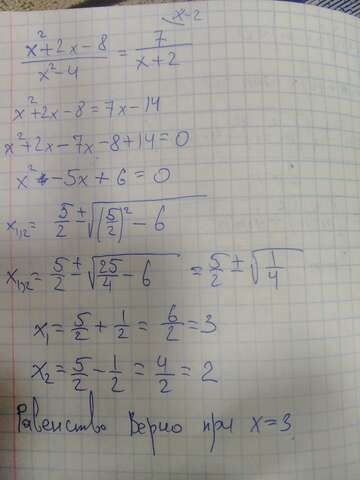 x-2
(x²+2x-8)/(x²-4) = 7/(x+2)
x²+2x-8=7x-14
x²+2x-7x-8+14=0
x²-5x+6=0
x₁,₂= 5/2 ± √((5/2)²-6)
x₁,₂= 5/2 ± √(25/4-6) = 5/2 ± √(1/4)
x₁= 5/2 + 1/2 = 6/2 = 3
x₂= 5/2 - 1/2 = 4/2 = 2
Равенство Верно при x=3